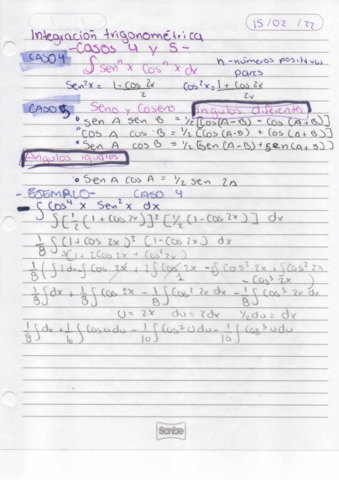 15/02/22
Integración trigonométrica
-Casos 4 y 5-
CASO 4 ∫ senⁿ x cosⁿ x dx n-números positivos pares
Sen²x = 1-cos2x/2 cos²x = 1+cos2x/2
CASO 5 Seno y Coseno Ángulos diferentes
• sen A sen B = 1/2[cos(A-B) - cos(A+B)]
• cos A cos B = 1/2[cos(A-B) + cos(A+B)]
• Sen A cos B = 1/2[sen(A-B) + sen(A+B)]
Ángulos iguales
• Sen A cos A = 1/2 sen 2A
-EJEMPLO- CASO 4
∫ cos⁴ x sen² x dx
∫ [1/2 (1+cos2x)]² [1/2 (1-cos2x)] dx
1/8 ∫ (1+cos2x)² (1-cos2x) dx
(1+2cos2x + cos²2x)
1/8 ∫dx + 1/8 ∫cos2x - 1/8 ∫cos²2x dx - 1/8 ∫cos³2x dx
u = 2x du = 2dx 1/2du = dx
1/8 ∫dx + 1/16 ∫cosu du - 1/16 ∫cos²u du - 1/16 ∫cos³u du
Scribe